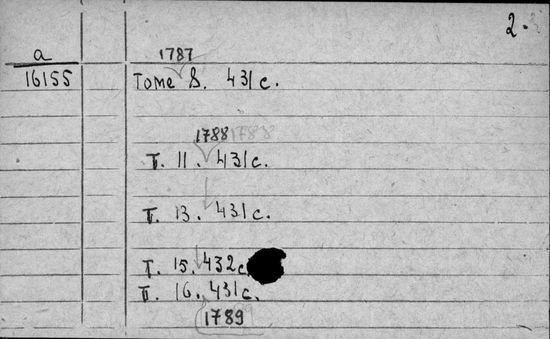 2.
a 1787
16155 Tome 8. 431 c.
1788
T. 11. 431 c.
T. 13. 431 c.
T. 15. 432 c
T. 16. 431 c.
1789